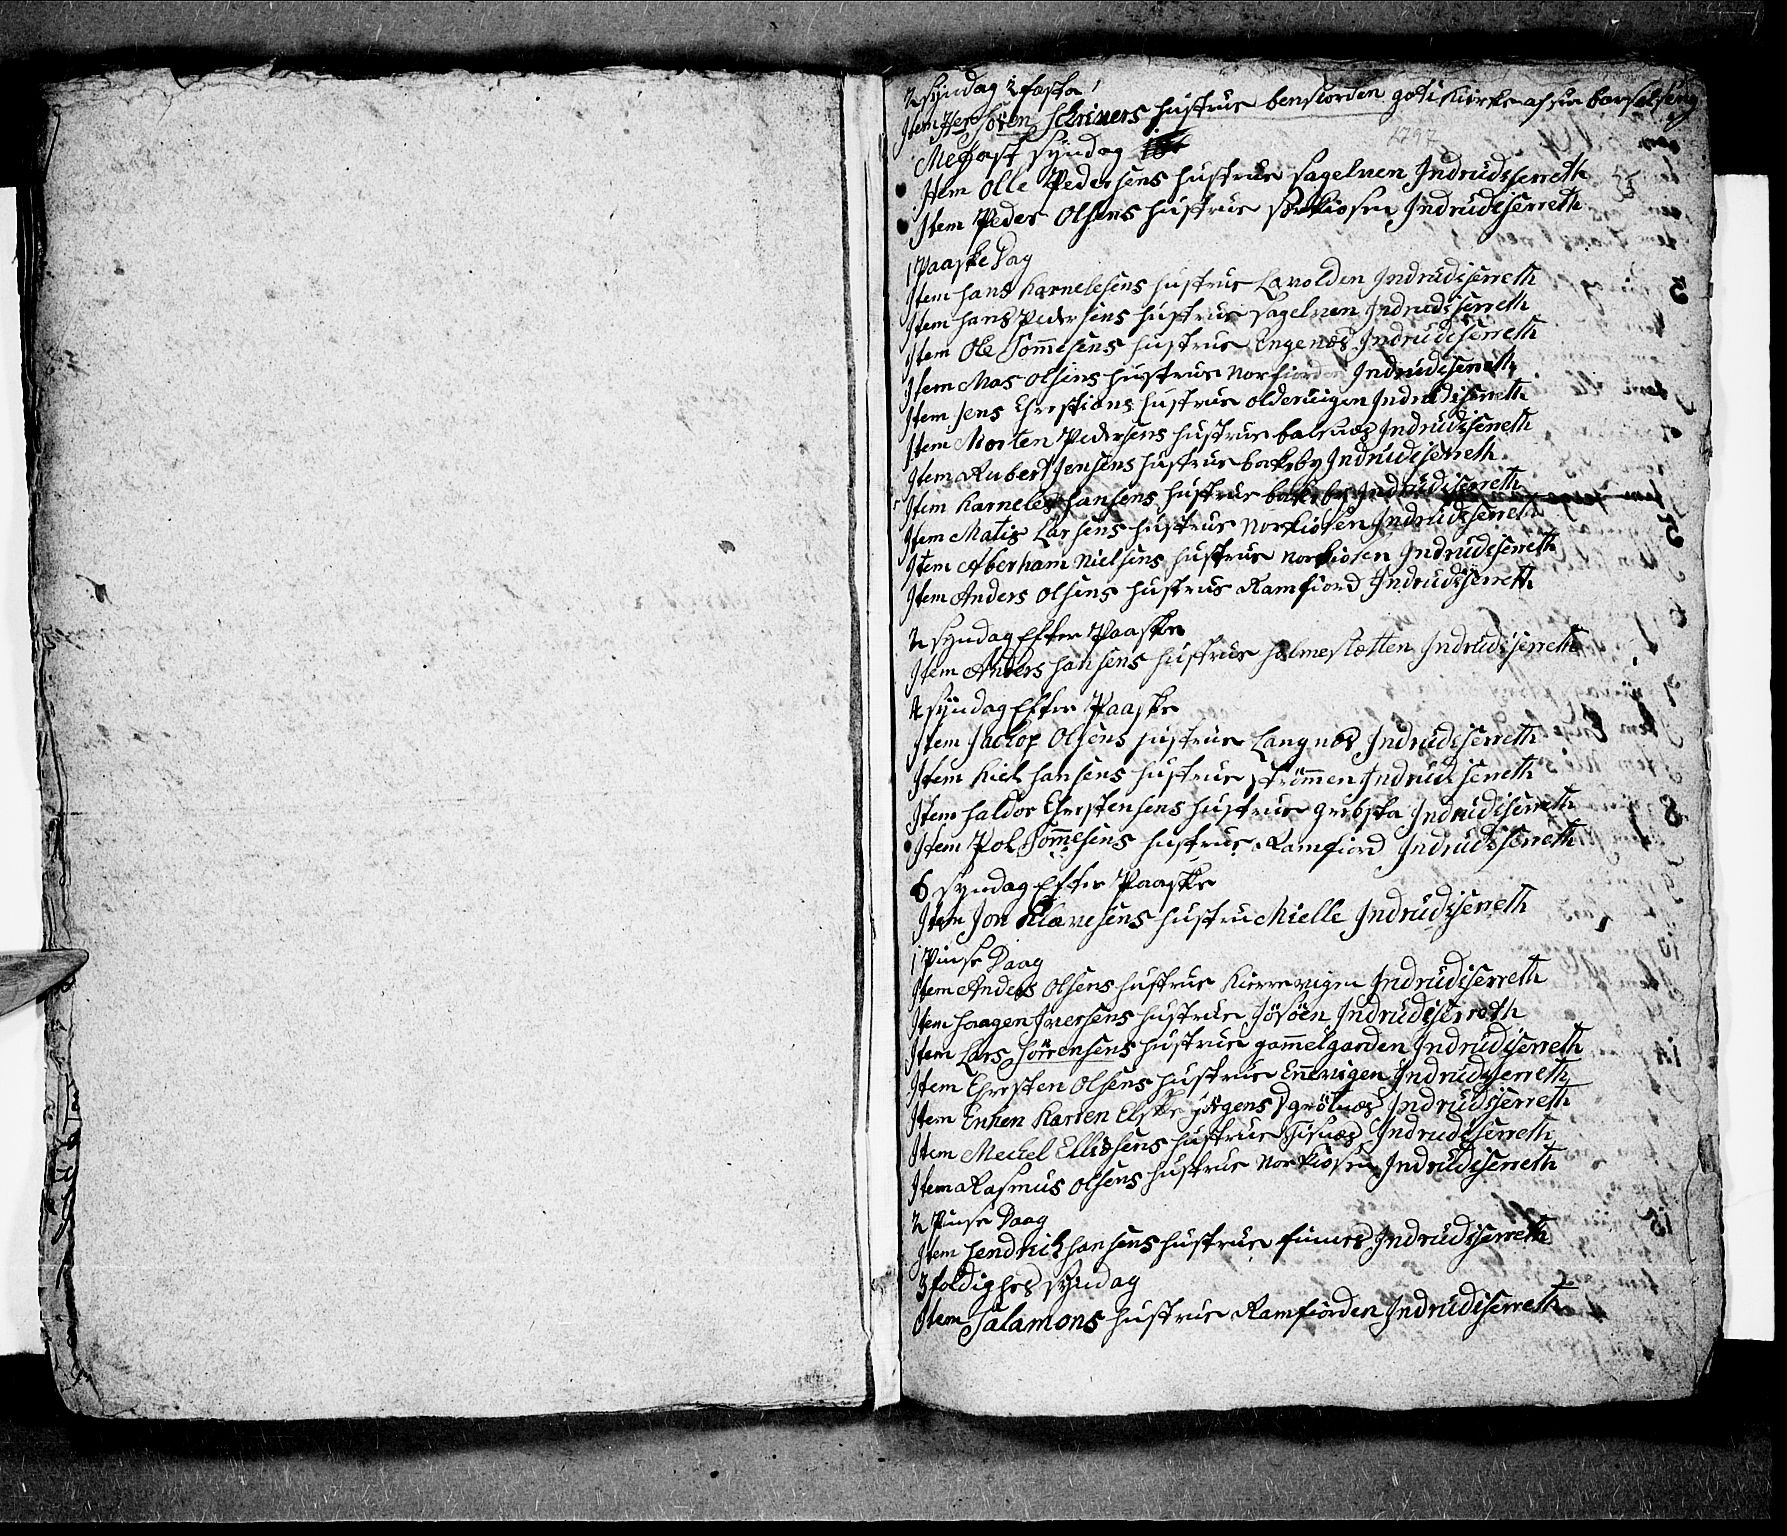 2 syndag i fasta
Item Her Sören Schrivers hustrue benstorden goti Kiirke af sin barselseng
1797
Mefast syndag
Item Olle Pedersens hustrue sagelven Indrudiserreth
Item Peder Olsens hustrue sørkiosen Indrudiserreth
1 Paaske Dag
Item hans Karnelesens hustrue Lavolden Indrudiserreth
Item hans Pedersens hustrue sagelven Indrudiserreth
Item Ole Tommesens hustrue Engenæs Indrudiserreth
Item Mas Olsens hustrue Norfiorden Indrudiserreth
Item Jens Christians hustrue olderuigen Indrudiserreth
Item Morten Pedersens hustrue balsnæs Indrudiserreth
Item Rubert Jensens hustrue bakeby Indrudiserreth
Item Karneles hansens hustrue bakeby Indrudiserreth
Item Matis Larsens hustrue Norkiosen Indrudiserreth
Item Aberham Nielsens hustrue norkiosen Indrudiserreth
Item Anders Olsens hustrue Ramfiord Indrudiserreth
2 syndag Efter Paaske
Item Anders hansens hustrue holmeslætten Indrudiserreth
4 syndag Efter Paaske
Item Jackop Olsens hustrue Langnes Indrudiserreth
Item Kiel hansens hustrue strömmen Indrudiserreth
Item haldor Christensens hustrue Indrudiserreth
Item Pol Tommesens hustrue Ramfiord Indrudiserreth
6 syndag Efter Paaske
Item Jon Klavesens hustru Mielle Indrudiserreth
1 Pinse Daag
Item Anders Olsens hustrue Kierrevigen Indrudiserreth
Item haagen Iversens hustrue Jösöen Indrudiserreth
Item Lars Sörrensens hustrue gammelgarden Indrudiserreth
Item Christen Olsens hustrue Ennevigen Indrudiserreth
Item Enken Karren Elske Jörgens D grötnæs Indrudiserreth
Item Meckel Ellisens hustrue Tisnæs Indrudiserreth
Item Rasmus Olsens hustrue Norkiosen Indrudiserreth
2 Pinse Daag
Item Hendrick hansens hustrue finnes Indrudiserreth
3 foldighes syndag
Item Salamons hustrue Ramfiorden Indrudiserreth